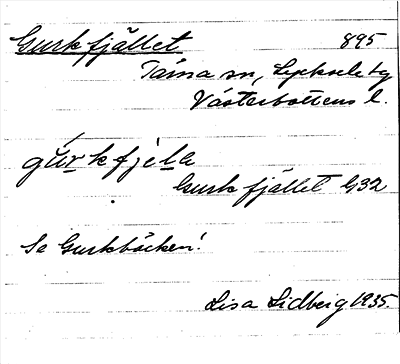 Gurkfjället 895
Tärna sn, Lycksele tg
Västerbottens l.
gu̱rkfje̱la
Gurkfjället G32
Se Gurkbäcken!
Lisa Lidberg 1935.